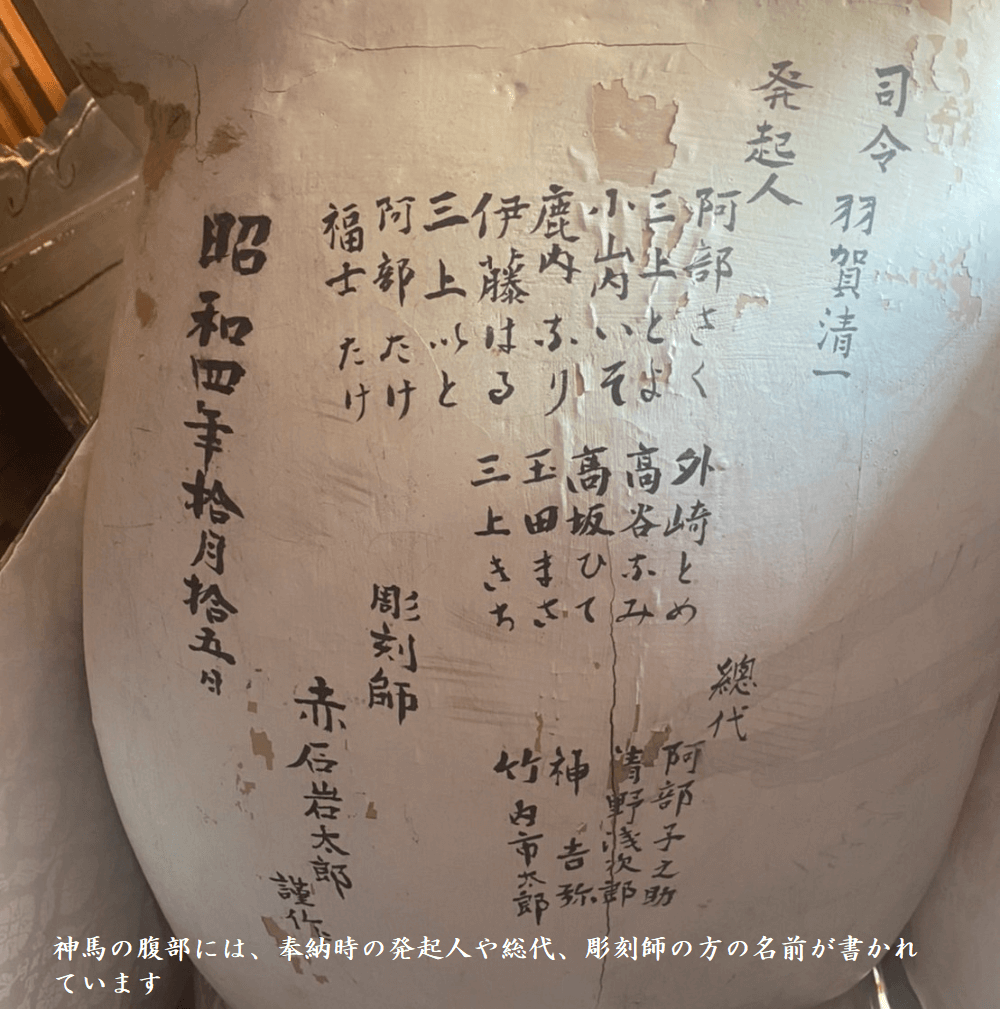 司令
羽賀清一
発起人
阿部さく
三上とよ
小山内いそ
鹿内なり
伊藤はる
三上いと
阿部たけ
福士たけ
外崎とめ
高谷なみ
髙坂ひて
玉田まさ
三上きち
總代
阿部子之助
清野浅次郎
神吉弥
竹内市太郎
彫刻師
赤石岩太郎
謹作
昭和四年拾月拾五日
神馬の腹部には、奉納時の発起人や総代、彫刻師の方の名前が書かれ
ています